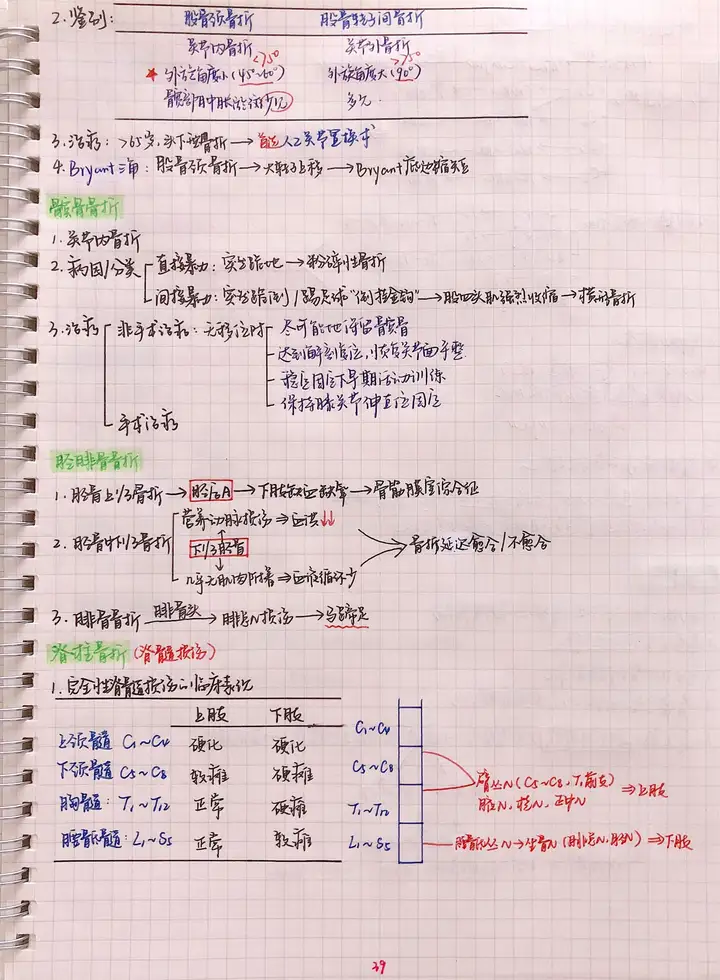 2.鉴别: 股骨颈骨折 股骨转子间骨折
关节内骨折 关节外骨折
<75° >75°
★ 外旋角度小(45°~60°) 外旋角度大(90°)
髋部肿胀瘀斑少见 多见
3.治疗: >65岁,头下型骨折→首选人工关节置换术
4.Bryant三角: 股骨颈骨折→大转子上移→Bryant底边缩短
髌骨骨折
1.关节内骨折
2.病因/分类 直接暴力: 突然跪地→粉碎性骨折
间接暴力: 突然跪倒/踢足球"倒挂金钩"→股四头肌强烈收缩→横形骨折
3.治疗 非手术治疗: 无移位时 尽可能地保留髌骨
达到解剖复位,恢复关节面平整
稳定固定下早期活动训练
保持膝关节伸直位固定
手术治疗
胫腓骨骨折
1.胫骨上1/3骨折→胫后A→下肢缺血缺氧→骨筋膜室综合征
营养动脉损伤⇒血供↓↓
2.胫骨中下1/3骨折 下1/3胫骨 骨折延迟愈合/不愈合
几乎无肌肉附着⇒血液循环少
3.腓骨骨折 腓骨头→腓总N损伤→马蹄足
脊柱骨折(脊髓损伤)
1.完全性脊髓损伤的临床表现
上肢 下肢
上颈髓 C₁~C₄ 硬化 硬化
下颈髓 C₅~C₈ 软瘫 硬瘫
胸髓: T₁~T₁₂ 正常 硬瘫
腰骶髓: L₁~S₅ 正常 软瘫
C₁~C₄
C₅~C₈
T₁~T₁₂
L₁~S₅
臂丛N(C₅~C₈,T₁前支) ⇒上肢
腋N,桡N,正中N
腰骶丛N→坐骨N(腓总N,胫N)⇒下肢
39